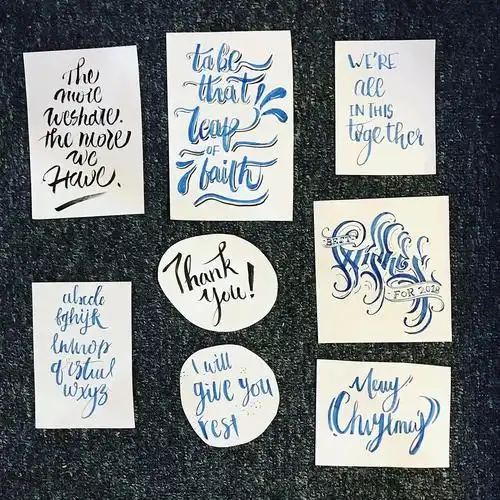 The
more
we share.
the more
we
Have.
take
that
leap
OF
faith
WE'RE
all
IN THIS
together
Thank
you!
BEST
Wishes
FOR 2018
abcde
fghijk
lmnop
qrstuv
wxyz
I will
give you
rest
Merry
Christmas